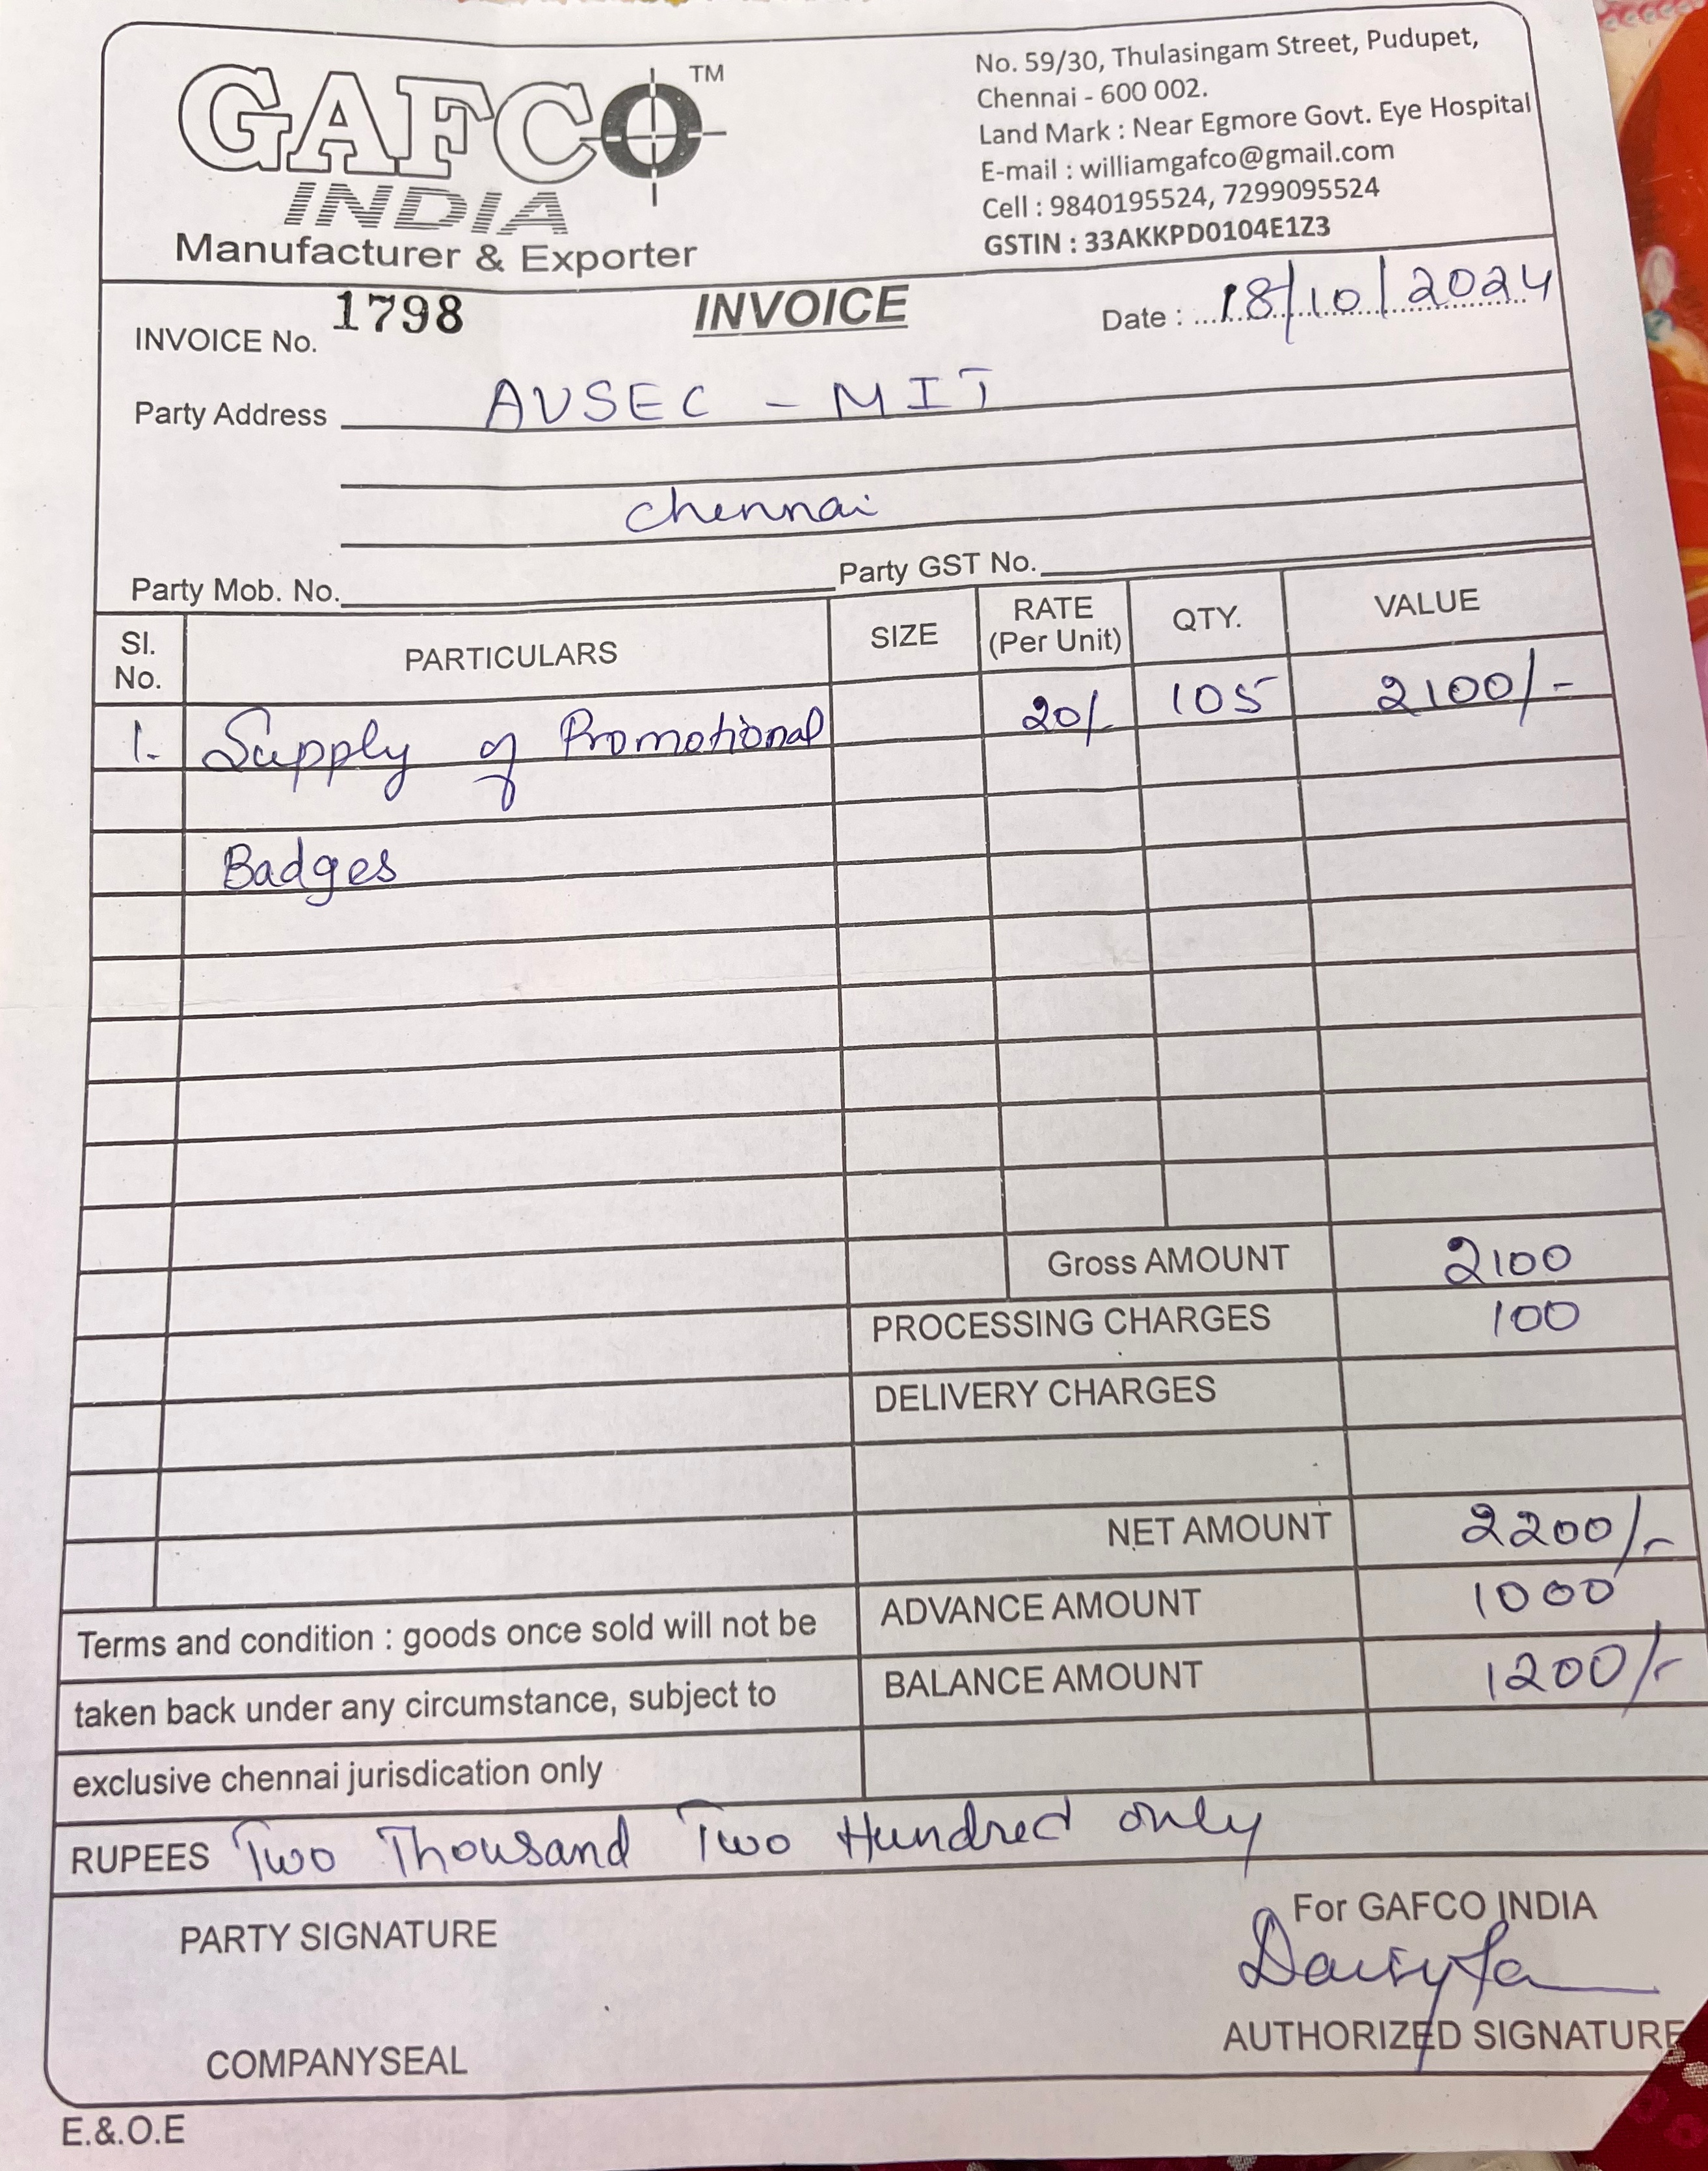 GAFCO TM
INDIA
Manufacturer & Exporter
No. 59/30, Thulasingam Street, Pudupet,
Chennai - 600 002.
Land Mark : Near Egmore Govt. Eye Hospital
E-mail : williamgafco@gmail.com
Cell : 9840195524, 7299095524
GSTIN : 33AKKPD0104E1Z3
INVOICE No. 1798 INVOICE Date : 18/10/2024
Party Address AVSEC - MIT
Chennai
Party Mob. No. Party GST No.
Sl. No. PARTICULARS SIZE RATE (Per Unit) QTY. VALUE
1. Supply of Promotional 20/- 105 2100/-
Badges
Gross AMOUNT 2100
PROCESSING CHARGES 100
DELIVERY CHARGES
NET AMOUNT 2200/-
ADVANCE AMOUNT 1000
BALANCE AMOUNT 1200/-
Terms and condition : goods once sold will not be
taken back under any circumstance, subject to
exclusive chennai jurisdication only
RUPEES Two Thousand Two Hundred only
PARTY SIGNATURE
For GAFCO INDIA
COMPANYSEAL
AUTHORIZED SIGNATURE
E.&.O.E